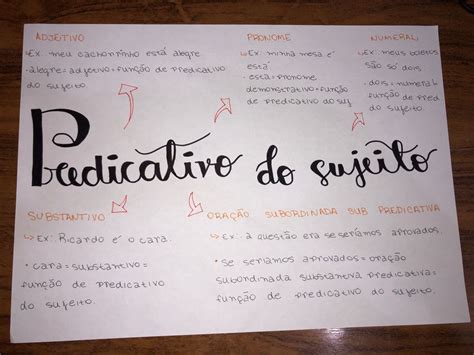 ADJETIVO
Ex: meu cachorrinho está alegre.
• alegre = adjetivo = função de predicativo
do sujeito.
PRONOME
Ex: minha mesa é
está
• esta = pronome
demonstrativo = função
de predicativo do suj
NUMERAL
Ex: meus objetos
são só dois.
• dois = numeral
função de pred
do sujeito.
Predicativo do sujeito
SUBSTANTIVO
Ex: Ricardo é o cara.
• cara = substantivo =
função de predicativo
do sujeito.
ORAÇÃO SUBORDINADA SUB PREDICATIVA
Ex: a questão era se seríamos aprovados.
• se seríamos aprovados = oração
subordinada substantiva predicativa =
função de predicativo do sujeito.